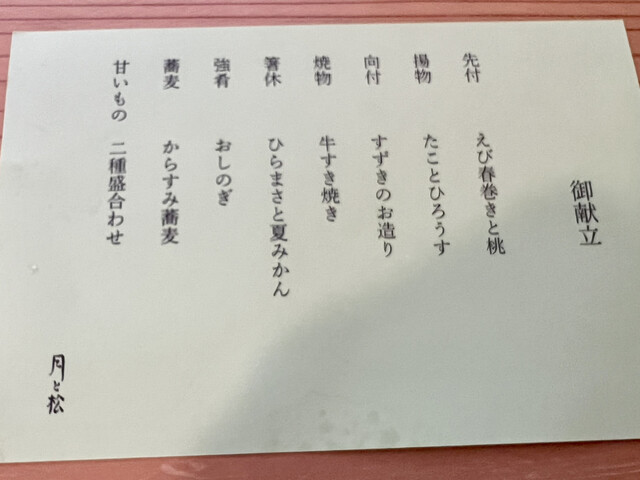 御献立
先付 えび春巻きと桃
揚物 たことひろうす
向付 すずきのお造り
焼物 牛すき焼き
箸休 ひらまさと夏みかん
強肴 おしのぎ
蕎麦 からすみ蕎麦
甘いもの 二種盛合わせ
月と松